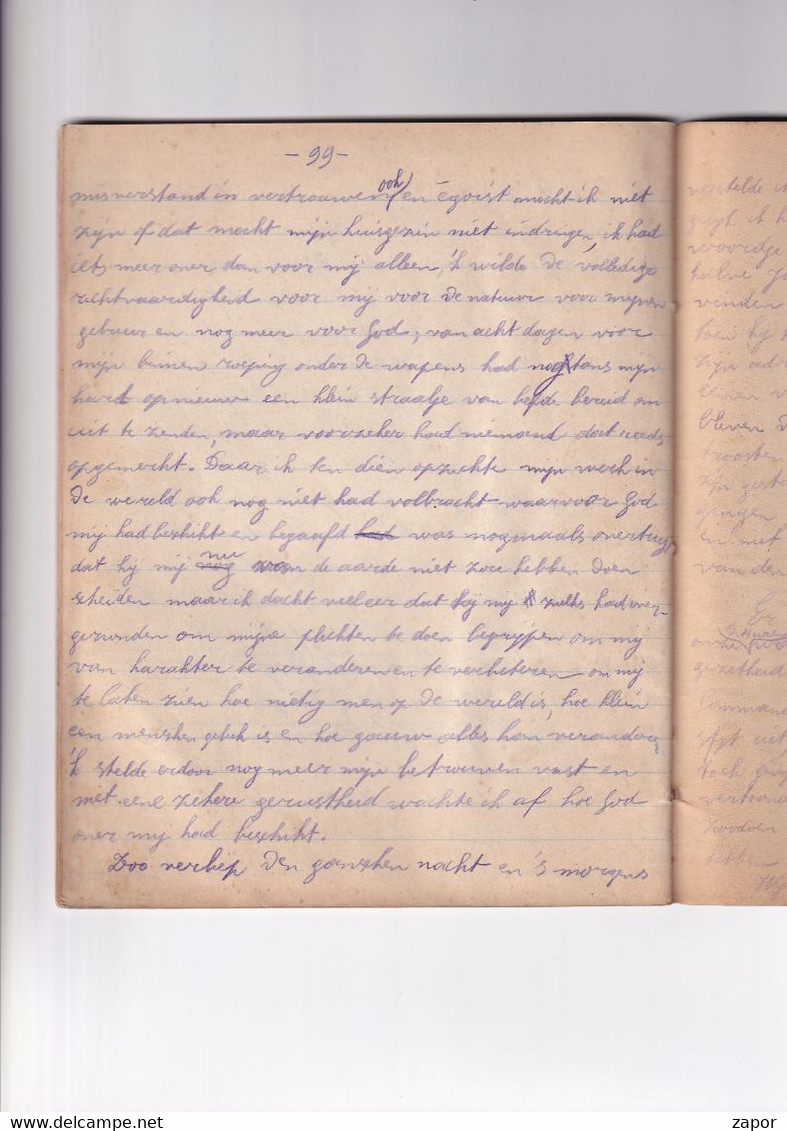 - 99 -
misverstand in vertrouwen, ook en égoist mocht ik niet
zijn of dat mocht mijn huisgezin niet indringen, ik had
iets meer over dan voor mij alleen, 'k wilde de volledige
rechtvaardigheid voor mij voor de natuur voor mijnen
gebuur en nog meer voor God, van acht dagen voor
mijn binnen roeping onder de wapens had nogtans mijn
hart opnieuw een klein straalje van liefde bereid om
uit te zenden, maar voorzeker had niemand dat reeds
opgemerkt. Daar ik ten dien opzichte mijn werk in
de wereld ook nog niet had volbracht waarvoor God
mij had beschikt en begaafd had was nogmaals overtuigd
dat hij mij nog nu van de aarde niet zoo hebben doen
scheiden maar ik dacht veeleer dat hij mij zulks had over-
gezonden om mijne plichten te doen begrijpen om mij
van karakter te veranderen en te verbeteren om mij
te laten zien hoe nietig men op de wereld is, hoe klein
een menschen geluk is en hoe gauw alles kan veranderen
'k stelde erdoor nog meer mijn betrouwen vast en
met eene zekere gerustheid wachte ik af hoe God
over mij had beschikt.
Zoo verliep den ganschen nacht en 's morgens
vertelde
woordje
halve
vinden
toen hij
zijn
eenen
bleven
troosten
zijn
gingen
en met
van den
Command
toch
zoodoen
hebben
zapor
zapor